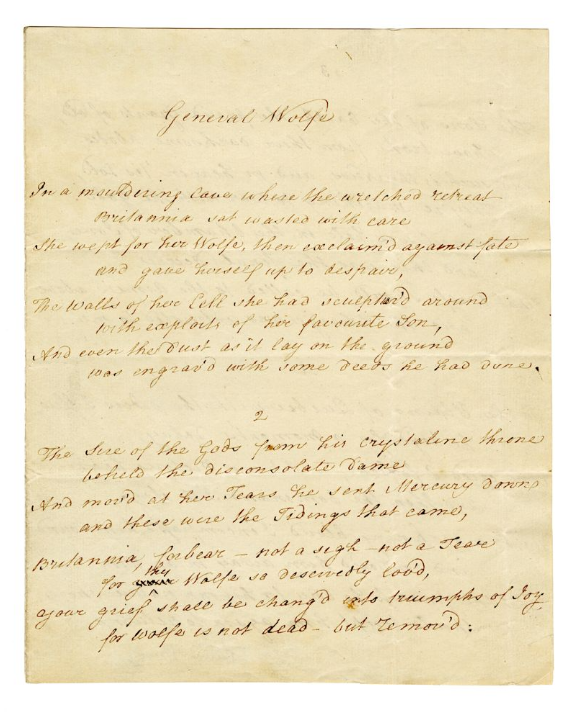 General Wolfe
In a mouldering cave where the wretched retreat
Britannia sat wasted with care
She wept for her Wolfe, then exclaim'd against fate
and gave herself up to despair,
The walls of her Cell she had sculptur'd around
with exploits of her favourite Son,
And even the dust as it lay on the ground
was engrav'd with some deeds he had done.
2
The Sire of the Gods from his crystaline throne
beheld the disconsolate dame
And mov'd at her Tears he sent Mercury down
and these were the Tidings that came,
Britannia forbear - not a sigh - not a Tear
thy
for your Wolfe so deservedly lov'd,
your grief shall be chang'd into triumphs of Joy
for Wolfe is not dead - but remov'd: